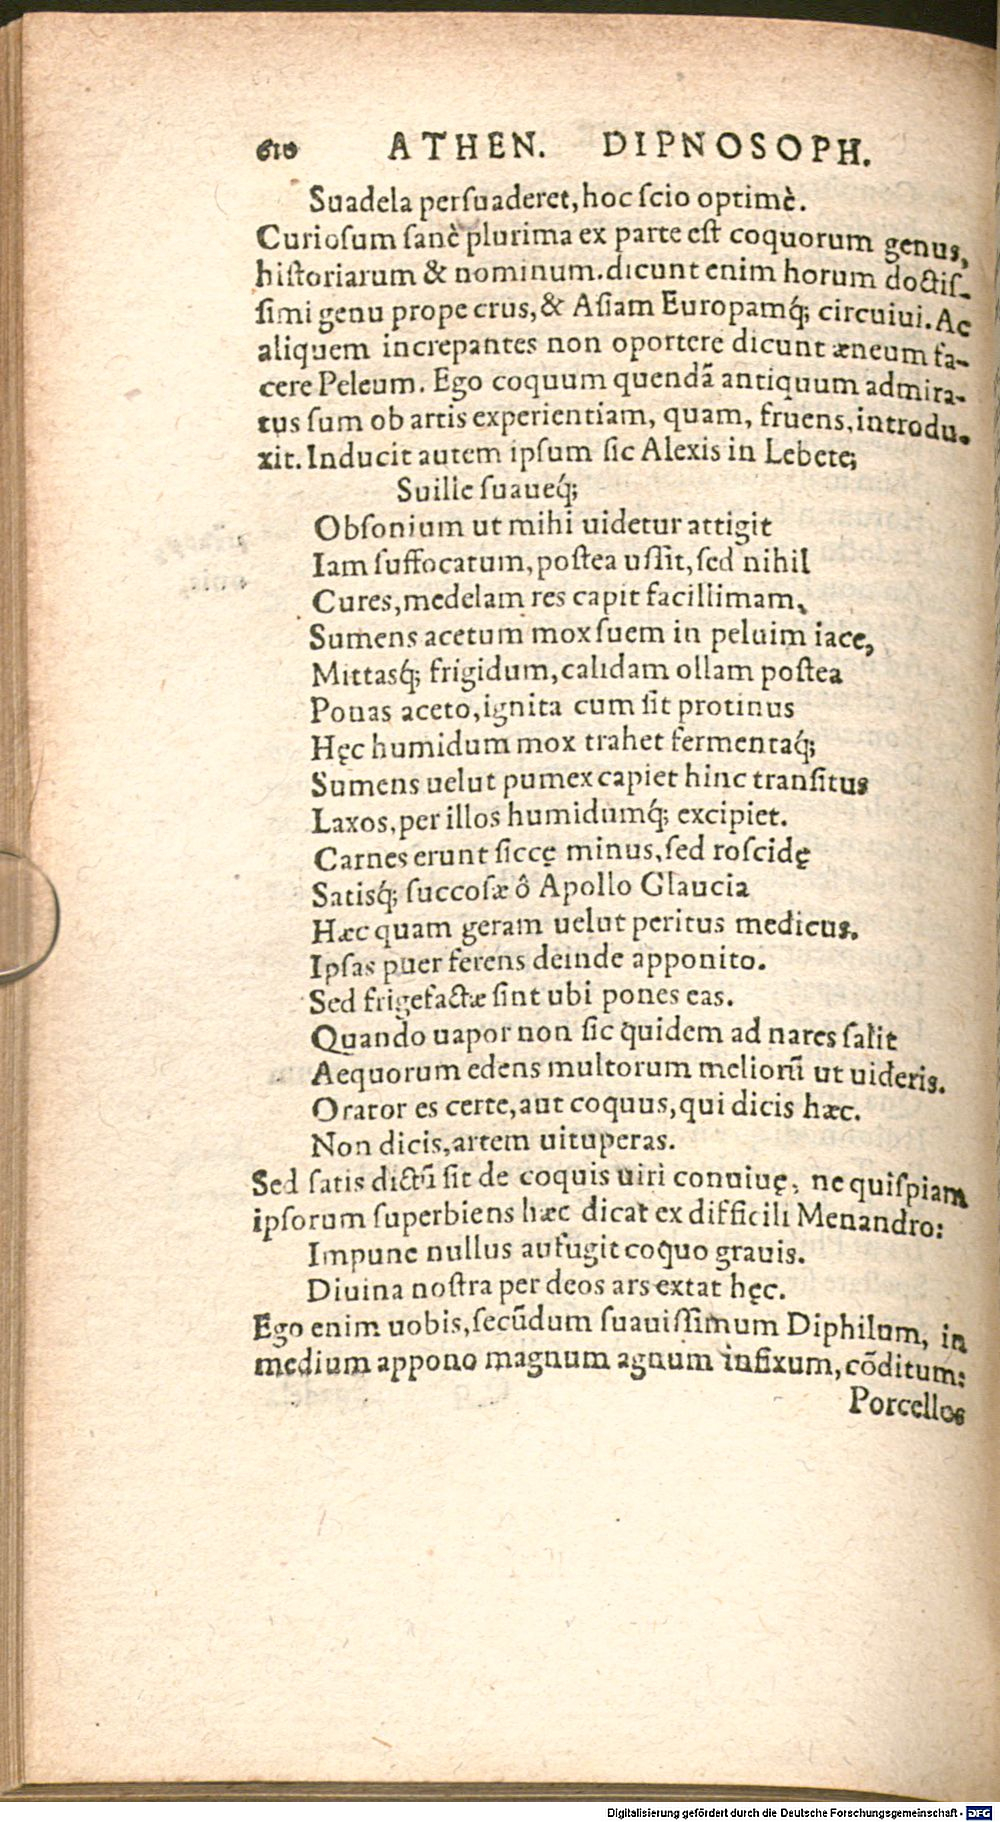 610 ATHEN. DIPNOSOPH.
Suadela persuaderet, hoc scio optimè.
Curiosum sanè plurima ex parte est coquorum genus,
historiarum & nominum. dicunt enim horum doctis-
simi genu prope crus, & Asiam Europamq́; circuiui. Ac
aliquem increpantes non oportere dicunt æneum fa-
cere Peleum. Ego coquum quendã antiquum admira-
tus sum ob artis experientiam, quam, fruens, introdu-
xit. Inducit autem ipsum sic Alexis in Lebete;
Suille suaueq́;
Obsonium ut mihi uidetur attigit
Iam suffocatum, postea ussit, sed nihil
Cures, medelam res capit facillimam,
Sumens acetum mox suem in peluim iace,
Mittasq́; frigidum, calidam ollam postea
Ponas aceto, ignita cum sit protinus
Hęc humidum mox trahet fermentaq́;
Sumens uelut pumex capiet hinc transitus
Laxos, per illos humidumq́; excipiet.
Carnes erunt siccę minus, sed roscidę
Satisq́; succosæ ô Apollo Glaucia
Hæc quam geram uelut peritus medicus.
Ipsas puer ferens deinde apponito.
Sed frigefactæ sint ubi pones eas.
Quando uapor non sic quidem ad nares salit
Aequorum edens multorum meliorũ ut uideris.
Orator es certe, aut coquus, qui dicis hæc.
Non dicis, artem uituperas.
Sed satis dictũ sit de coquis uiri conuiuę, ne quispiam
ipsorum superbiens hæc dicat ex difficili Menandro:
Impune nullus aufugit coquo grauis.
Diuina nostra per deos ars extat hęc.
Ego enim uobis, secũdum suauissimum Diphilum, in
medium appono magnum agnum infixum, cõditum:
Porcellos
Digitalisierung gefördert durch die Deutsche Forschungsgemeinschaft - DFG